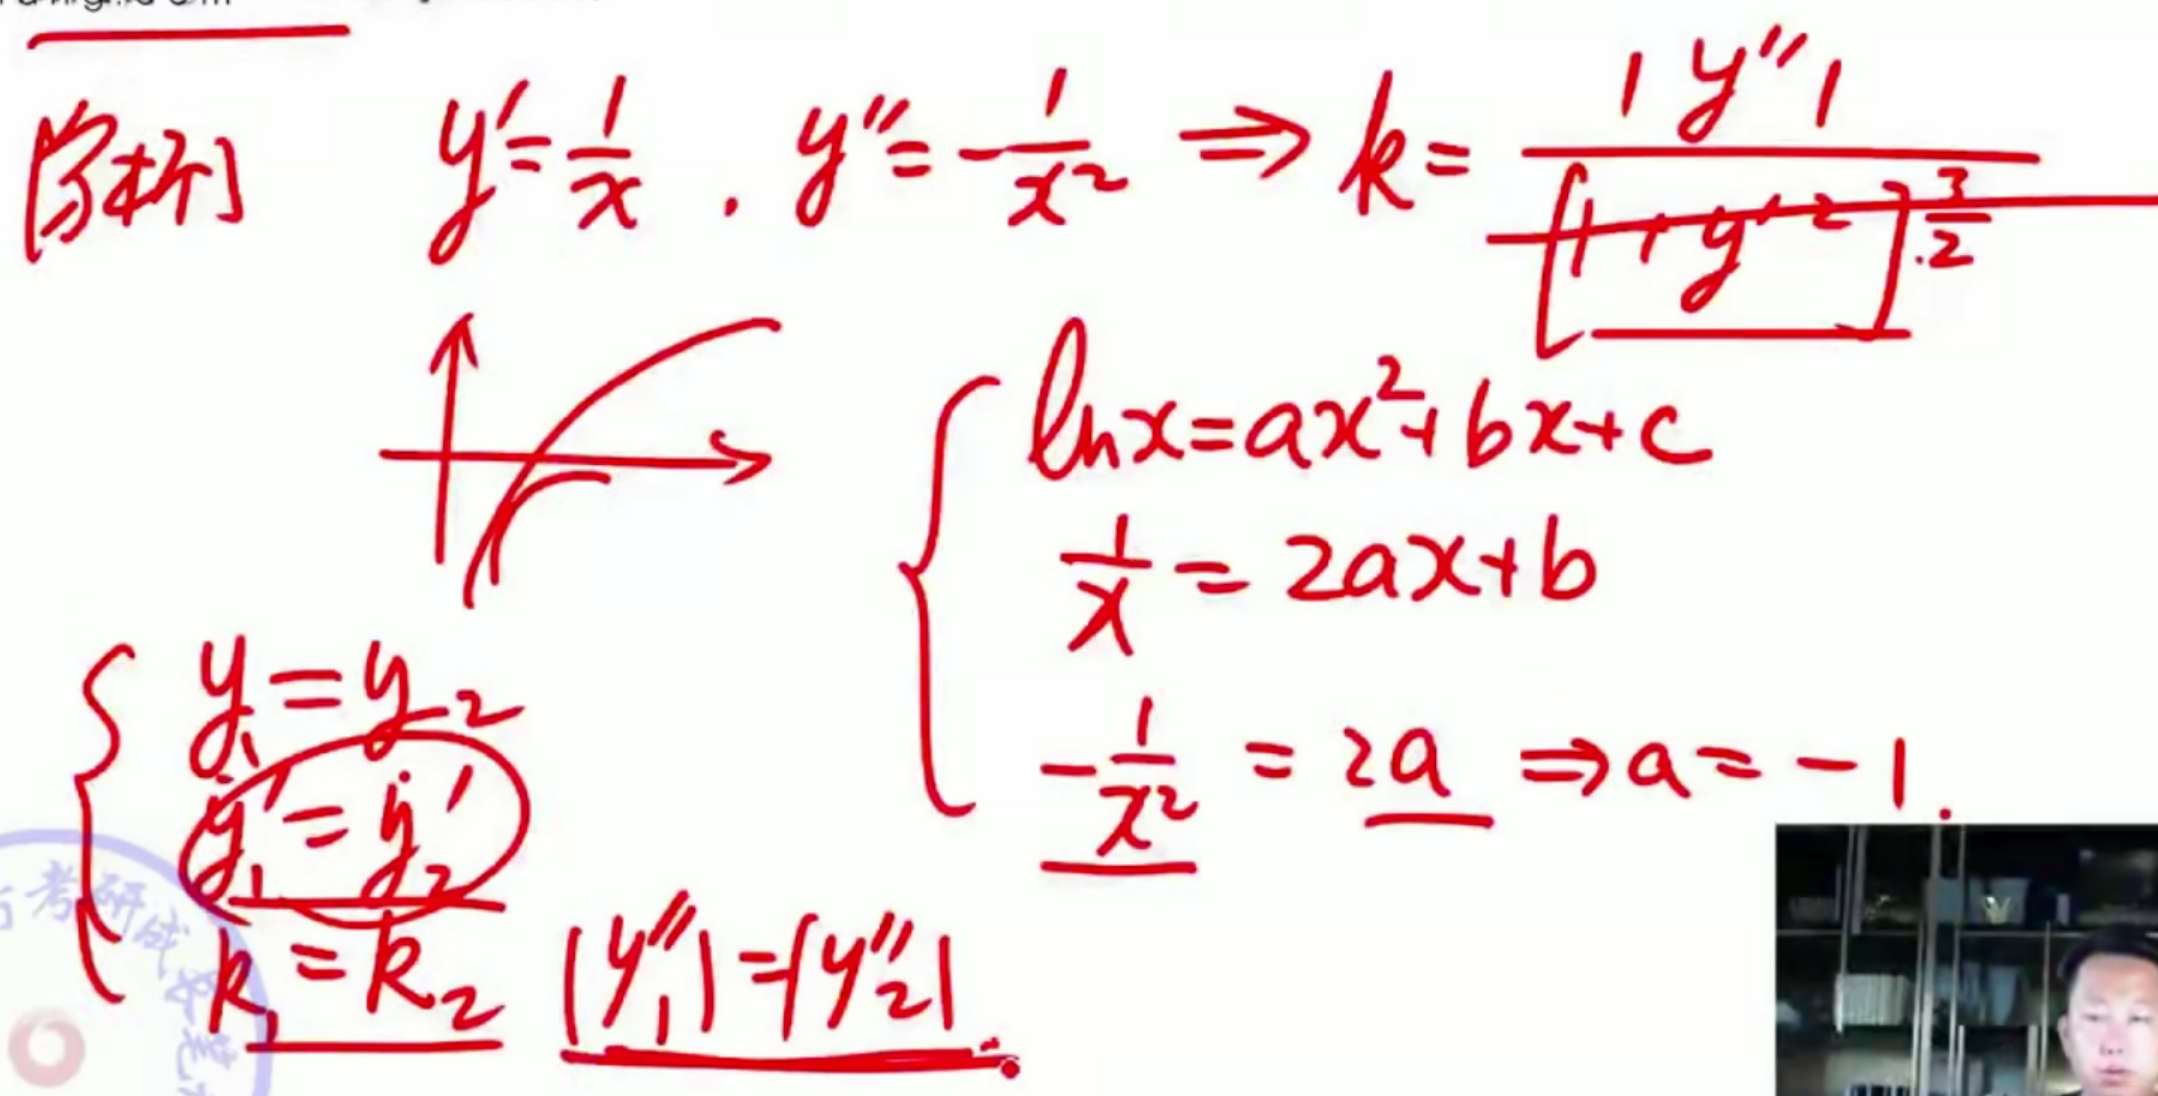 [解析] y′=1/x . y″=-1/x² ⇒ k=|y″|/[1+y′²]^(3/2)
lnx=ax²+bx+c
1/x=2ax+b
-1/x²=2a ⇒a=-1.
y₁=y₂
y₁′=y₂′
k₁=k₂ |y₁″|=|y₂″|.
考研